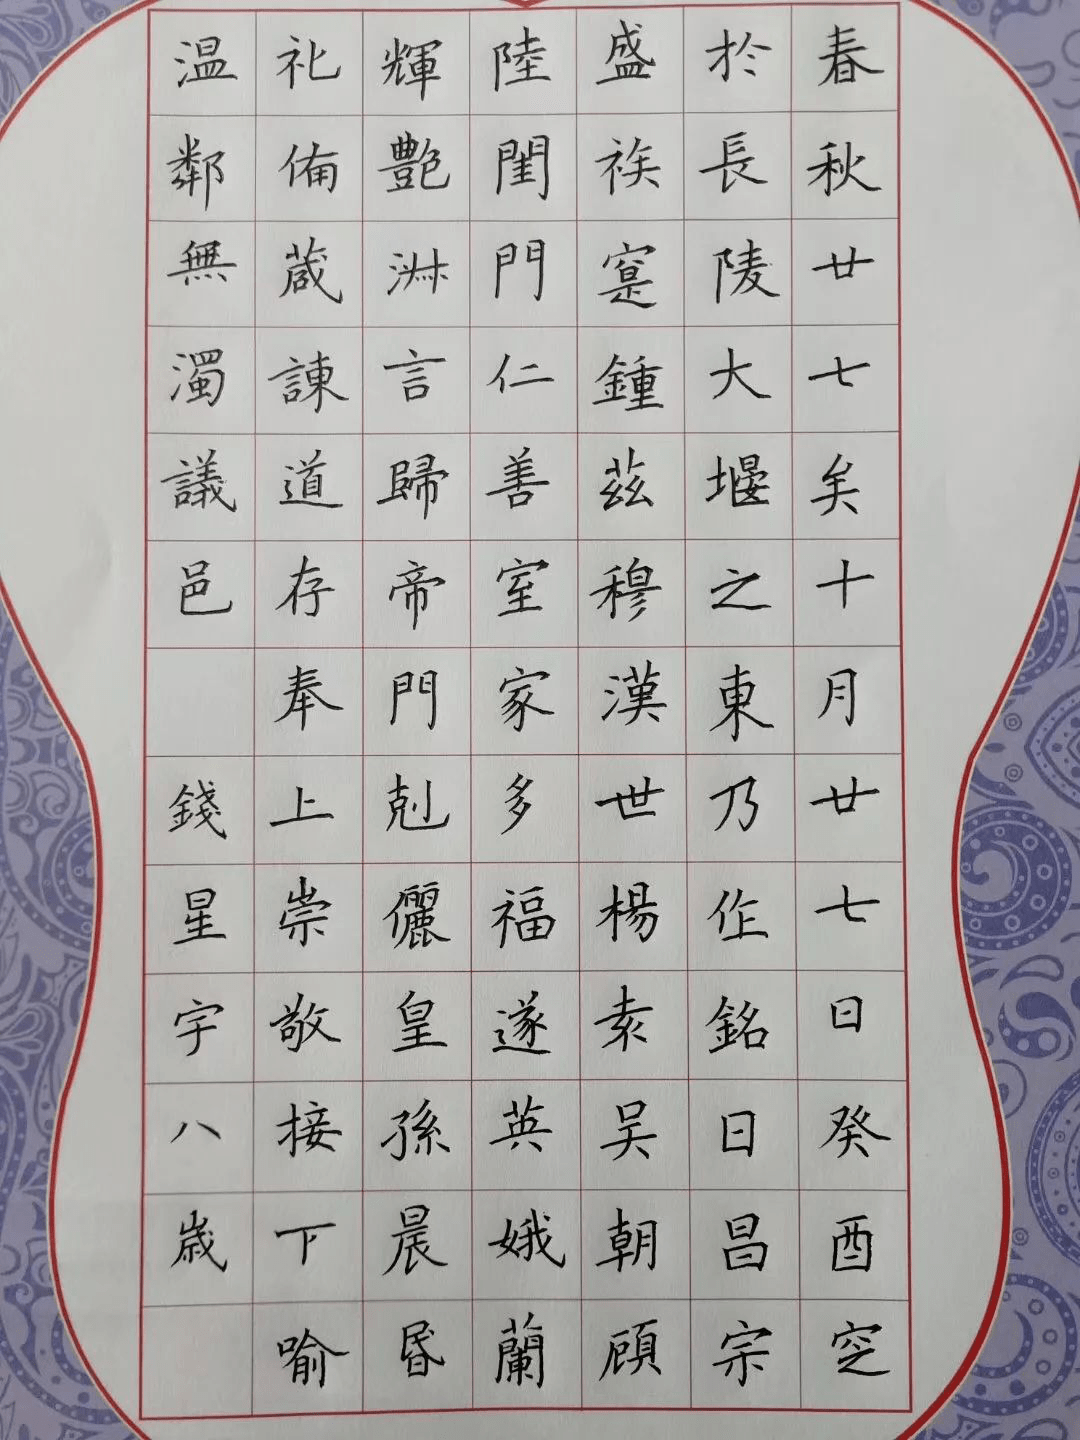 春秋廿七矣十月廿七日癸酉窆
於長陵大堰之東乃作銘日昌宗
盛族寔鍾茲穆漢世楊袁吴朝顧
陸閨門仁善室家多福遂英娥蘭
輝艶淋言歸帝門剋儷皇孫晨昏
礼俻葴諫道存奉上崇敬接下喻
温鄰無濁議邑
錢星宇八歲